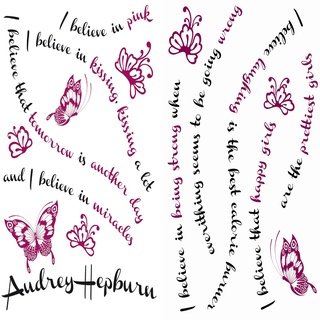 I believe in pink
I believe in kissing, kissing a lot
I believe that tomorrow is another day
and I believe in miracles
Audrey Hepburn
I believe in being strong when
everything seems to be going wrong
I believe laughing is the best calorie burner
I believe that happy girls
are the prettiest girls